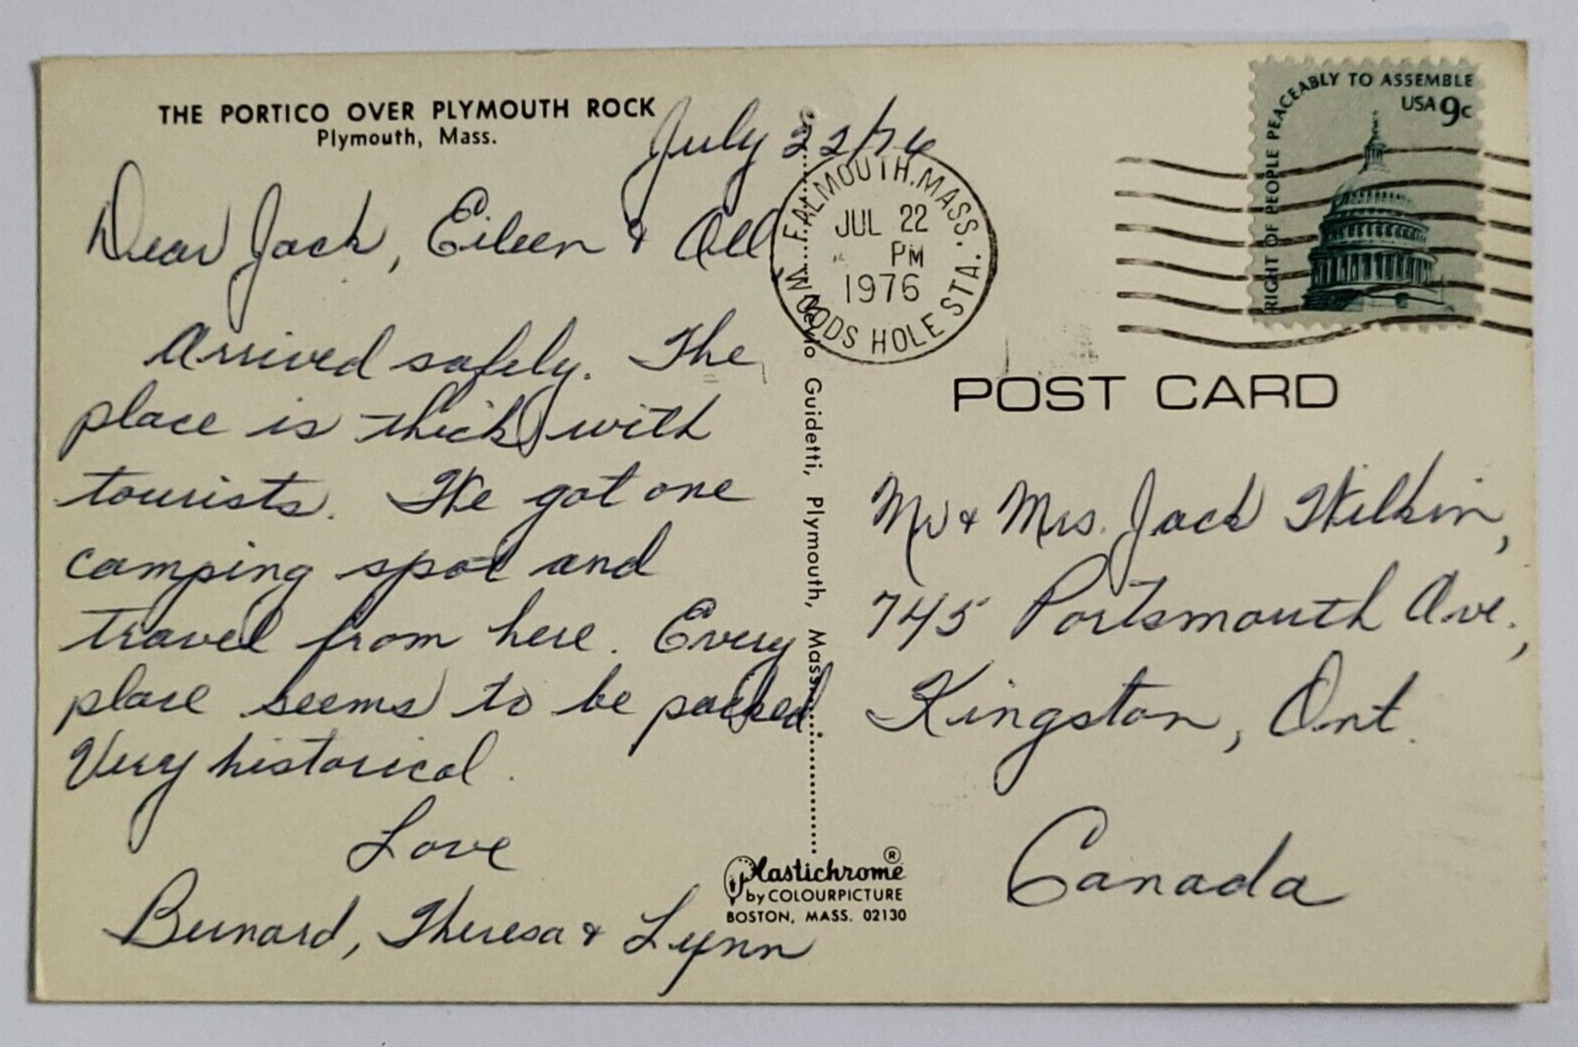 THE PORTICO OVER PLYMOUTH ROCK
Plymouth, Mass.
July 22/76
Dear Jack, Eileen & All,
Arrived safely. The
place is thick with
tourists. We got one
camping spot and
travel from here. Every
place seems to be packed.
Very historical.
Love
Bernard, Theresa & Lynn
Guidetti, Plymouth, Mass.
Plastichrome®
by COLOURPICTURE
BOSTON, MASS. 02130
FALMOUTH, MASS.
JUL 22
PM
1976
WOODS HOLE STA.
RIGHT OF PEOPLE PEACEABLY TO ASSEMBLE
USA 9c
POST CARD
Mr & Mrs. Jack Wilkin,
745 Portsmouth Ave.,
Kingston, Ont.
Canada